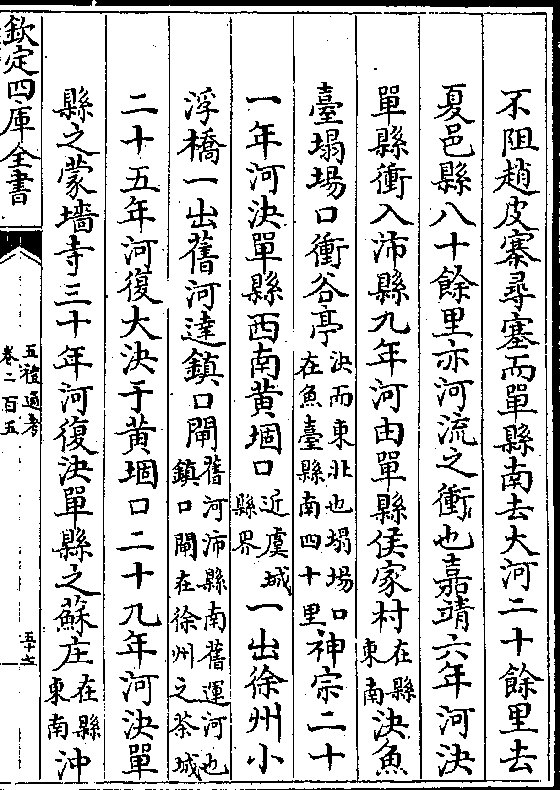 不阻趙皮寨尋塞而單縣南去大河二十餘里去
夏邑縣八十餘里亦河流之衝也嘉靖六年河決
單縣衝入沛縣九年河由單縣侯家村在縣東南決魚
臺塌場口衝谷亭決而東北也塌場口在魚臺縣南四十里神宗二十
一年河決單縣西南黄堌口近虞城縣界一出徐州小
浮橋一出舊河達鎮口閘舊河沛縣南舊運河也鎮口閘在徐州之茶城
二十五年河復大決于黄堌口二十九年河決單
縣之蒙墻寺三十年河復決單縣之蘇庄在縣東南沖
欽定四庫全書
五禮通考
卷二百五
五十六